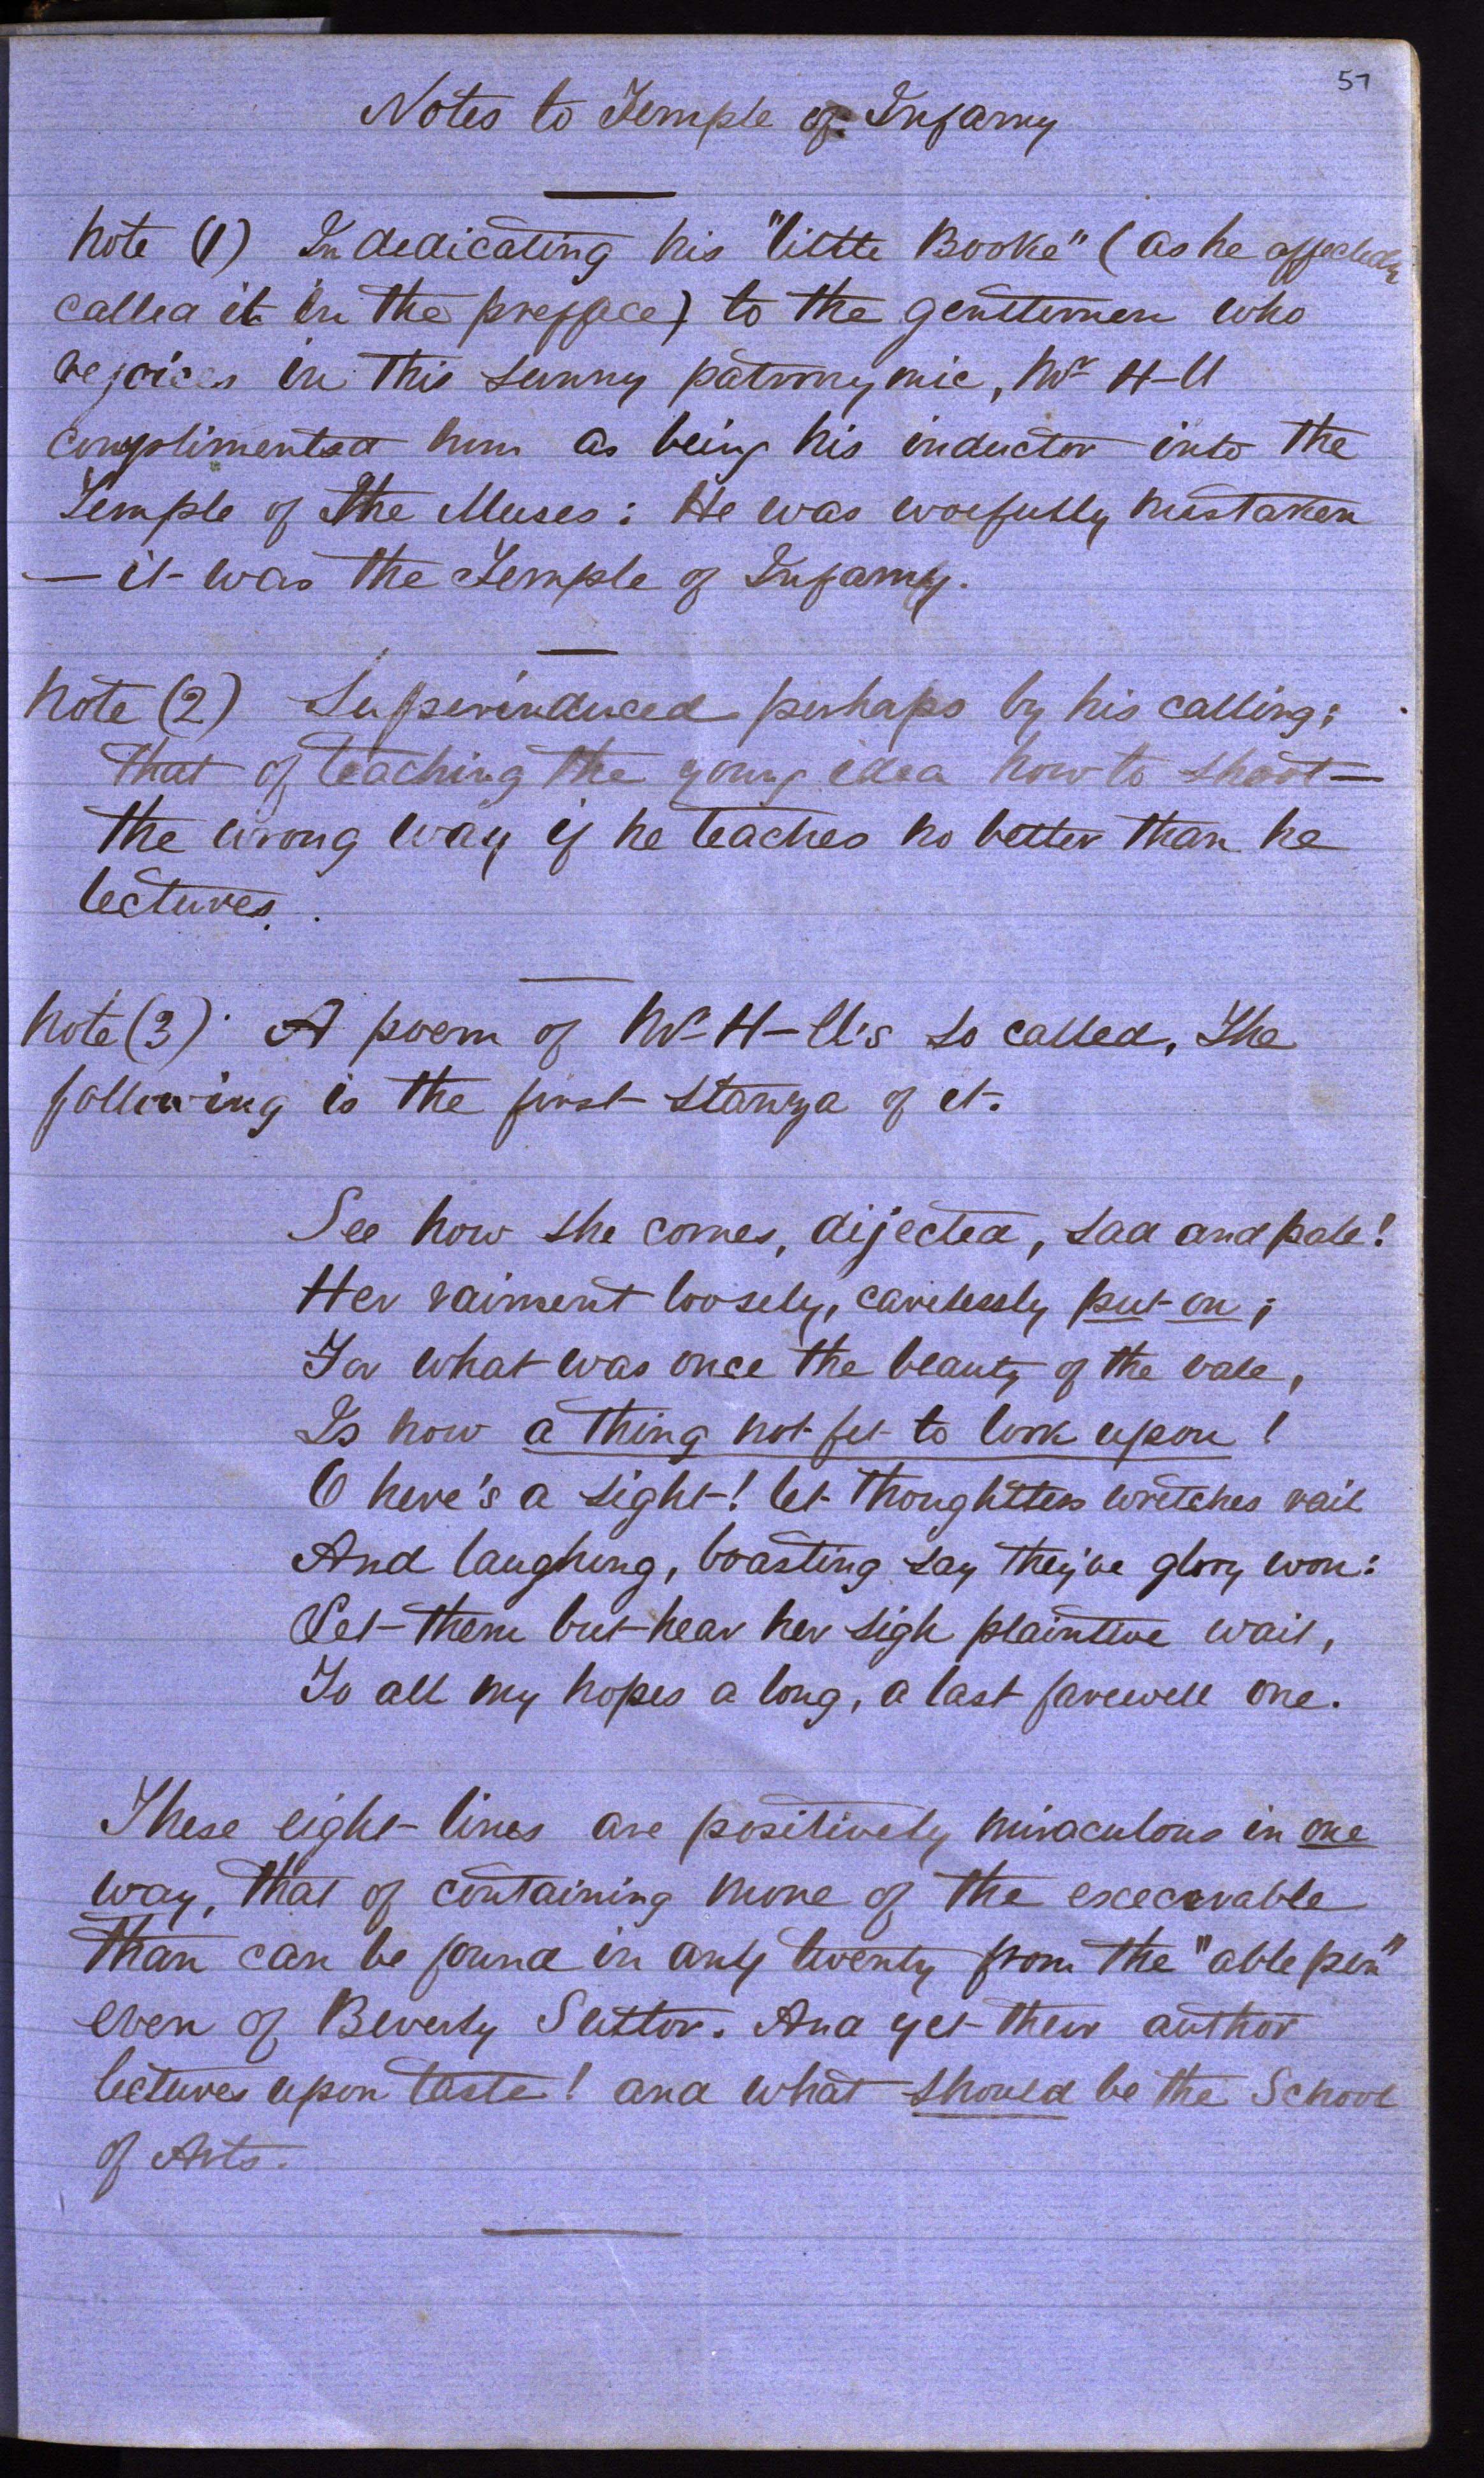 57
Notes to Temple of Infamy
Note (1) In dedicating his "little Booke" (as he affectedly
called it in the preface) to the gentlemen who
rejoices in this sunny patronymic, Mr H-ll
complimented him as being his inductor into the
Temple of the Muses: He was woefully mistaken
— it was the Temple of Infamy.
Note (2) Superinduced perhaps by his calling;
that of teaching the young idea how to shoot —
the wrong way if he teaches no better than he
lectures.
Note (3) A poem of Mr H-ll's so called, The
following is the first stanza of it.
See how she comes, dijected, sad and pale!
Her raiment loosely, carelessly put on;
For what was once the beauty of the vale,
Is now a thing not fit to look upon!
O here's a sight! let thoughtless wretches rail
And laughing, boasting say they've glory won:
Let them but hear her sigh plaintive wail,
To all my hopes a long, a last farewell one.
These eight lines are positively miraculous in one
way, that of containing more of the execrable
than can be found in any twenty from the "able pen"
even of Beverly Suttor. And yet their author
lectures upon taste! and what should be the School
of Arts.